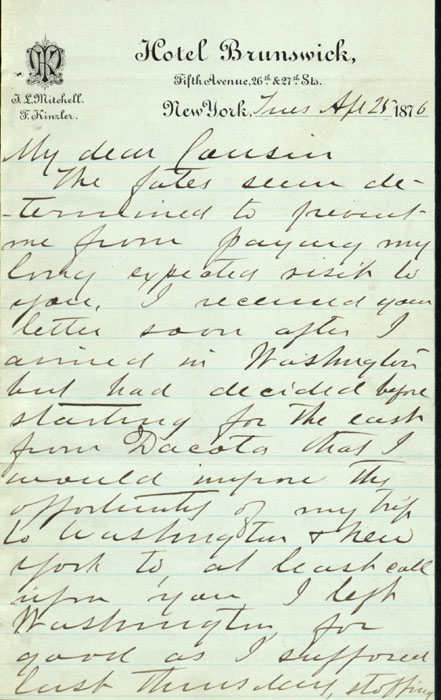 Hotel Brunswick,
Fifth Avenue, 26th & 27th Sts.
J. L. Mitchell.
F. Kinzler.
New York, Tues Apl 25 1876
My dear Cousin
The fates seem de-
-termined to prevent
me from paying my
long expected visit to
you. I received your
letter soon after I
arrived in Washington
but had decided before
starting for the east
from Dacota that I
would improve the
opportunity of my trip
to Washington & New
York to, at least call
upon you I left
Washington, for
good as I supposed
last Thursday, stopping